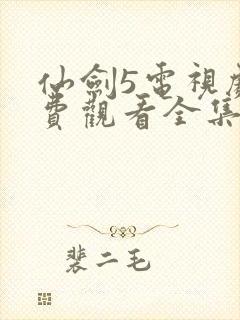 仙劍5電視
費觀看全集
裴二毛